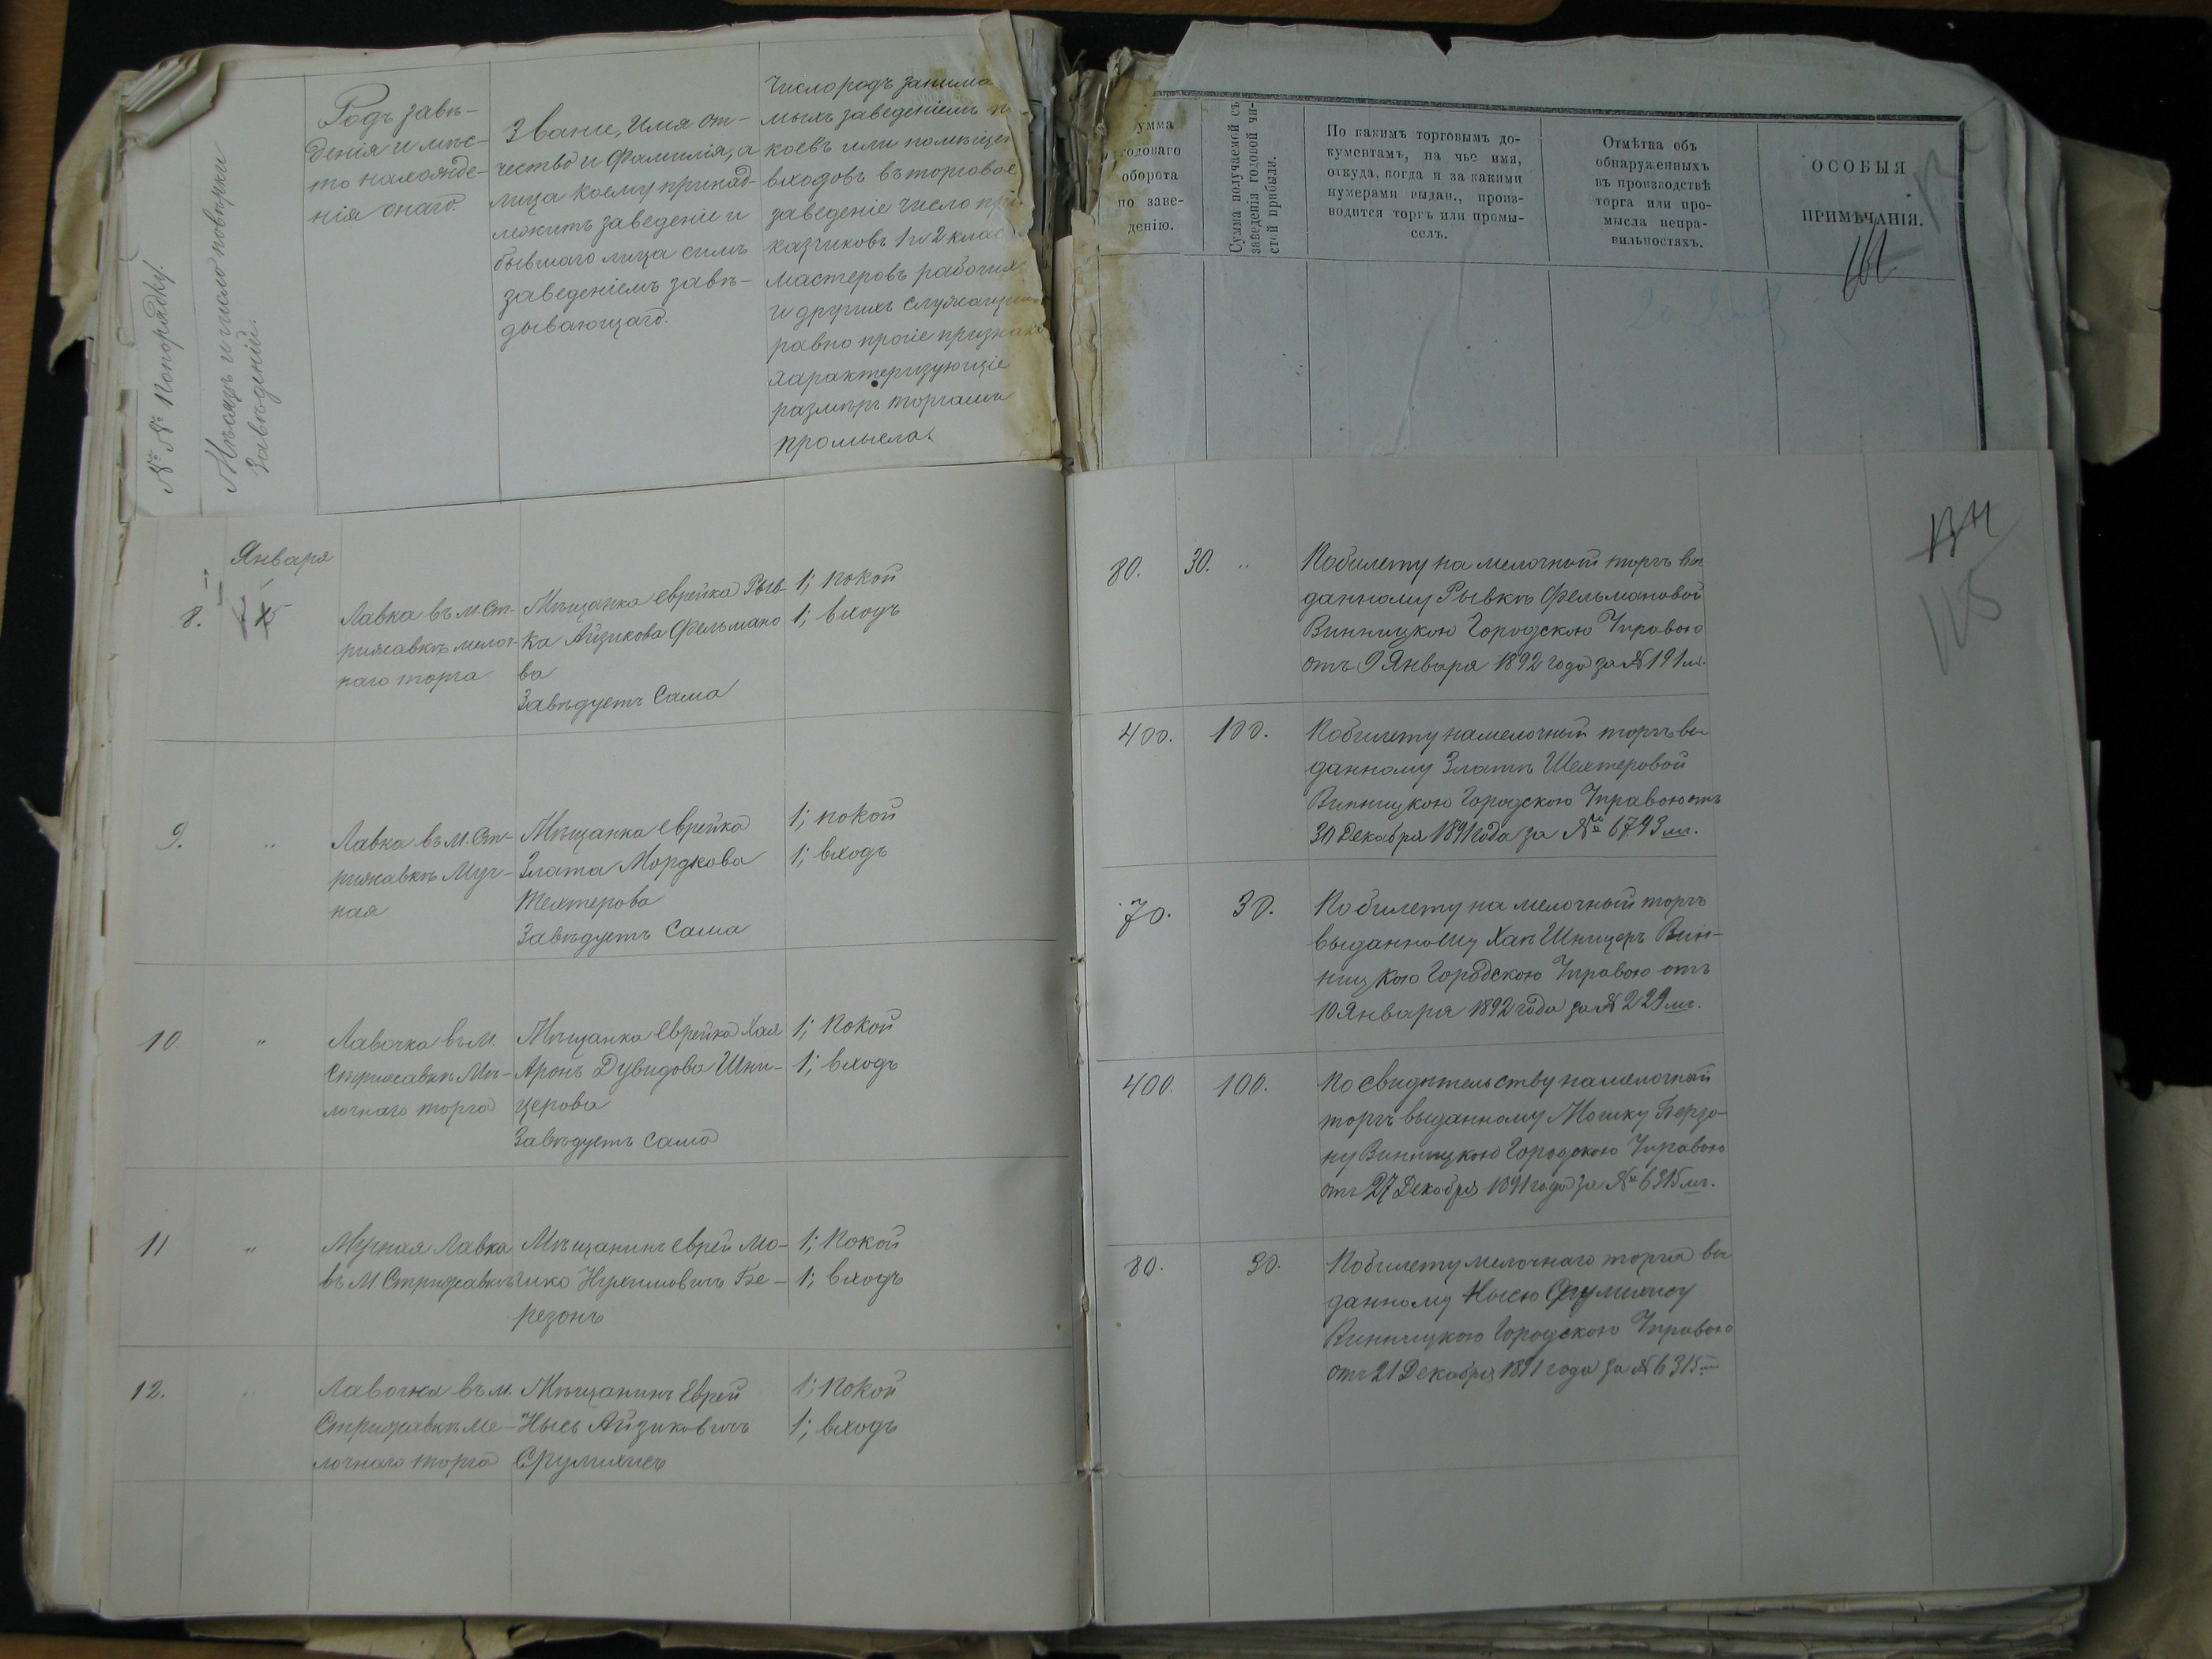 № № по порядку.
Мѣсяцъ и число повѣрки
Заведенія.
Родъ заве-
денія и мѣс-
то нахожде-
нія онаго.
Званіе, Имя от-
чество и Фамилія, а
лица коему принад-
лежитъ заведеніе и
бывшаго лица симъ
заведеніемъ завѣ-
дывающаго.
Число родъ занима
мыхъ заведеніемъ п
коевъ или помѣщен
входовъ въ торговое
заведеніе число при
казчиковъ 1 и 2 клас
мастеровъ рабочих
и другихъ служащи
равно прочіе признаки
характеризующіе
размѣръ торга и
промысла.
умма
годоваго
оборота
по заве-
денію.
Сумма получаемой съ
заведенія годовой чи-
стой прибыли.
По какимъ торговымъ до-
кументамъ, на чье имя,
откуда, когда и за какими
нумерами выдан., произ-
водится торгъ или промы-
селъ.
Отмѣтка объ
обнаруженныхъ
въ производствѣ
торга или про-
мысла непра-
вильностяхъ.
ОСОБЫЯ
ПРИМѢЧАНІЯ.
Января
8.
Лавка въ м. Ст-
рижавкѣ мелоч-
наго торга
Мѣщанка Еврейка Рыв-
ка Айзикова Фельмано
ва
Завѣдуетъ Сама
1; покой
1; входъ
80.
30. "
По билету на мелочной торгъ вы
данному Рывкѣ Фельмановой
Винницкою Городскою Управою
отъ 9 Января 1892 года за № 191 м.
9.
"
Лавка въ м. Ст-
рижавкѣ Муч-
ная
Мѣщанка Еврейка
Злата Мордкова
Шехтерова
Завѣдуетъ Сама
1; покой
1; входъ
400.
100.
По билету на мелочный торгъ вы
данному Златѣ Шехтеровой
Винницкою Городскою Управою отъ
30 Декабря 1891 года за № 6743 м.
10
"
Лавочка въ М.
Стрижавкѣ Ме-
лочнаго торга
Мѣщанка Еврейка Хая
Аронъ Дувидова Шни-
церова
Завѣдуетъ Сама
1; Покой
1; входъ
70.
30.
По билету на мелочной торгъ
выданному Хаѣ Шницеръ Вин-
ницкою Городскою Управою отъ
10 Января 1892 года за № 229 м.
11
"
Мучная Лавка
въ М Стрижавкѣ
Мѣщанинъ Еврей Мо-
шко Нухимовичъ Бе-
резонъ
1; Покой
1; входъ
400.
100.
По Свидѣтельству на мелочной
торгъ выданному Мошку Берзо-
ну Винницкою Городскою Управою
отъ 27 Декабря 1891 года за № 6515 м.
12.
"
Лавочка въ м.
Стрижавкѣ Ме-
лочнаго торга
Мѣщанинъ Еврей
Нысь Айзиковичъ
1; Покой
1; входъ
80.
30.
По билету мелочнаго торга вы
данному Нысю
Винницкою Городскою Управою
отъ 21 Декабря 1891 года за № 6315
115